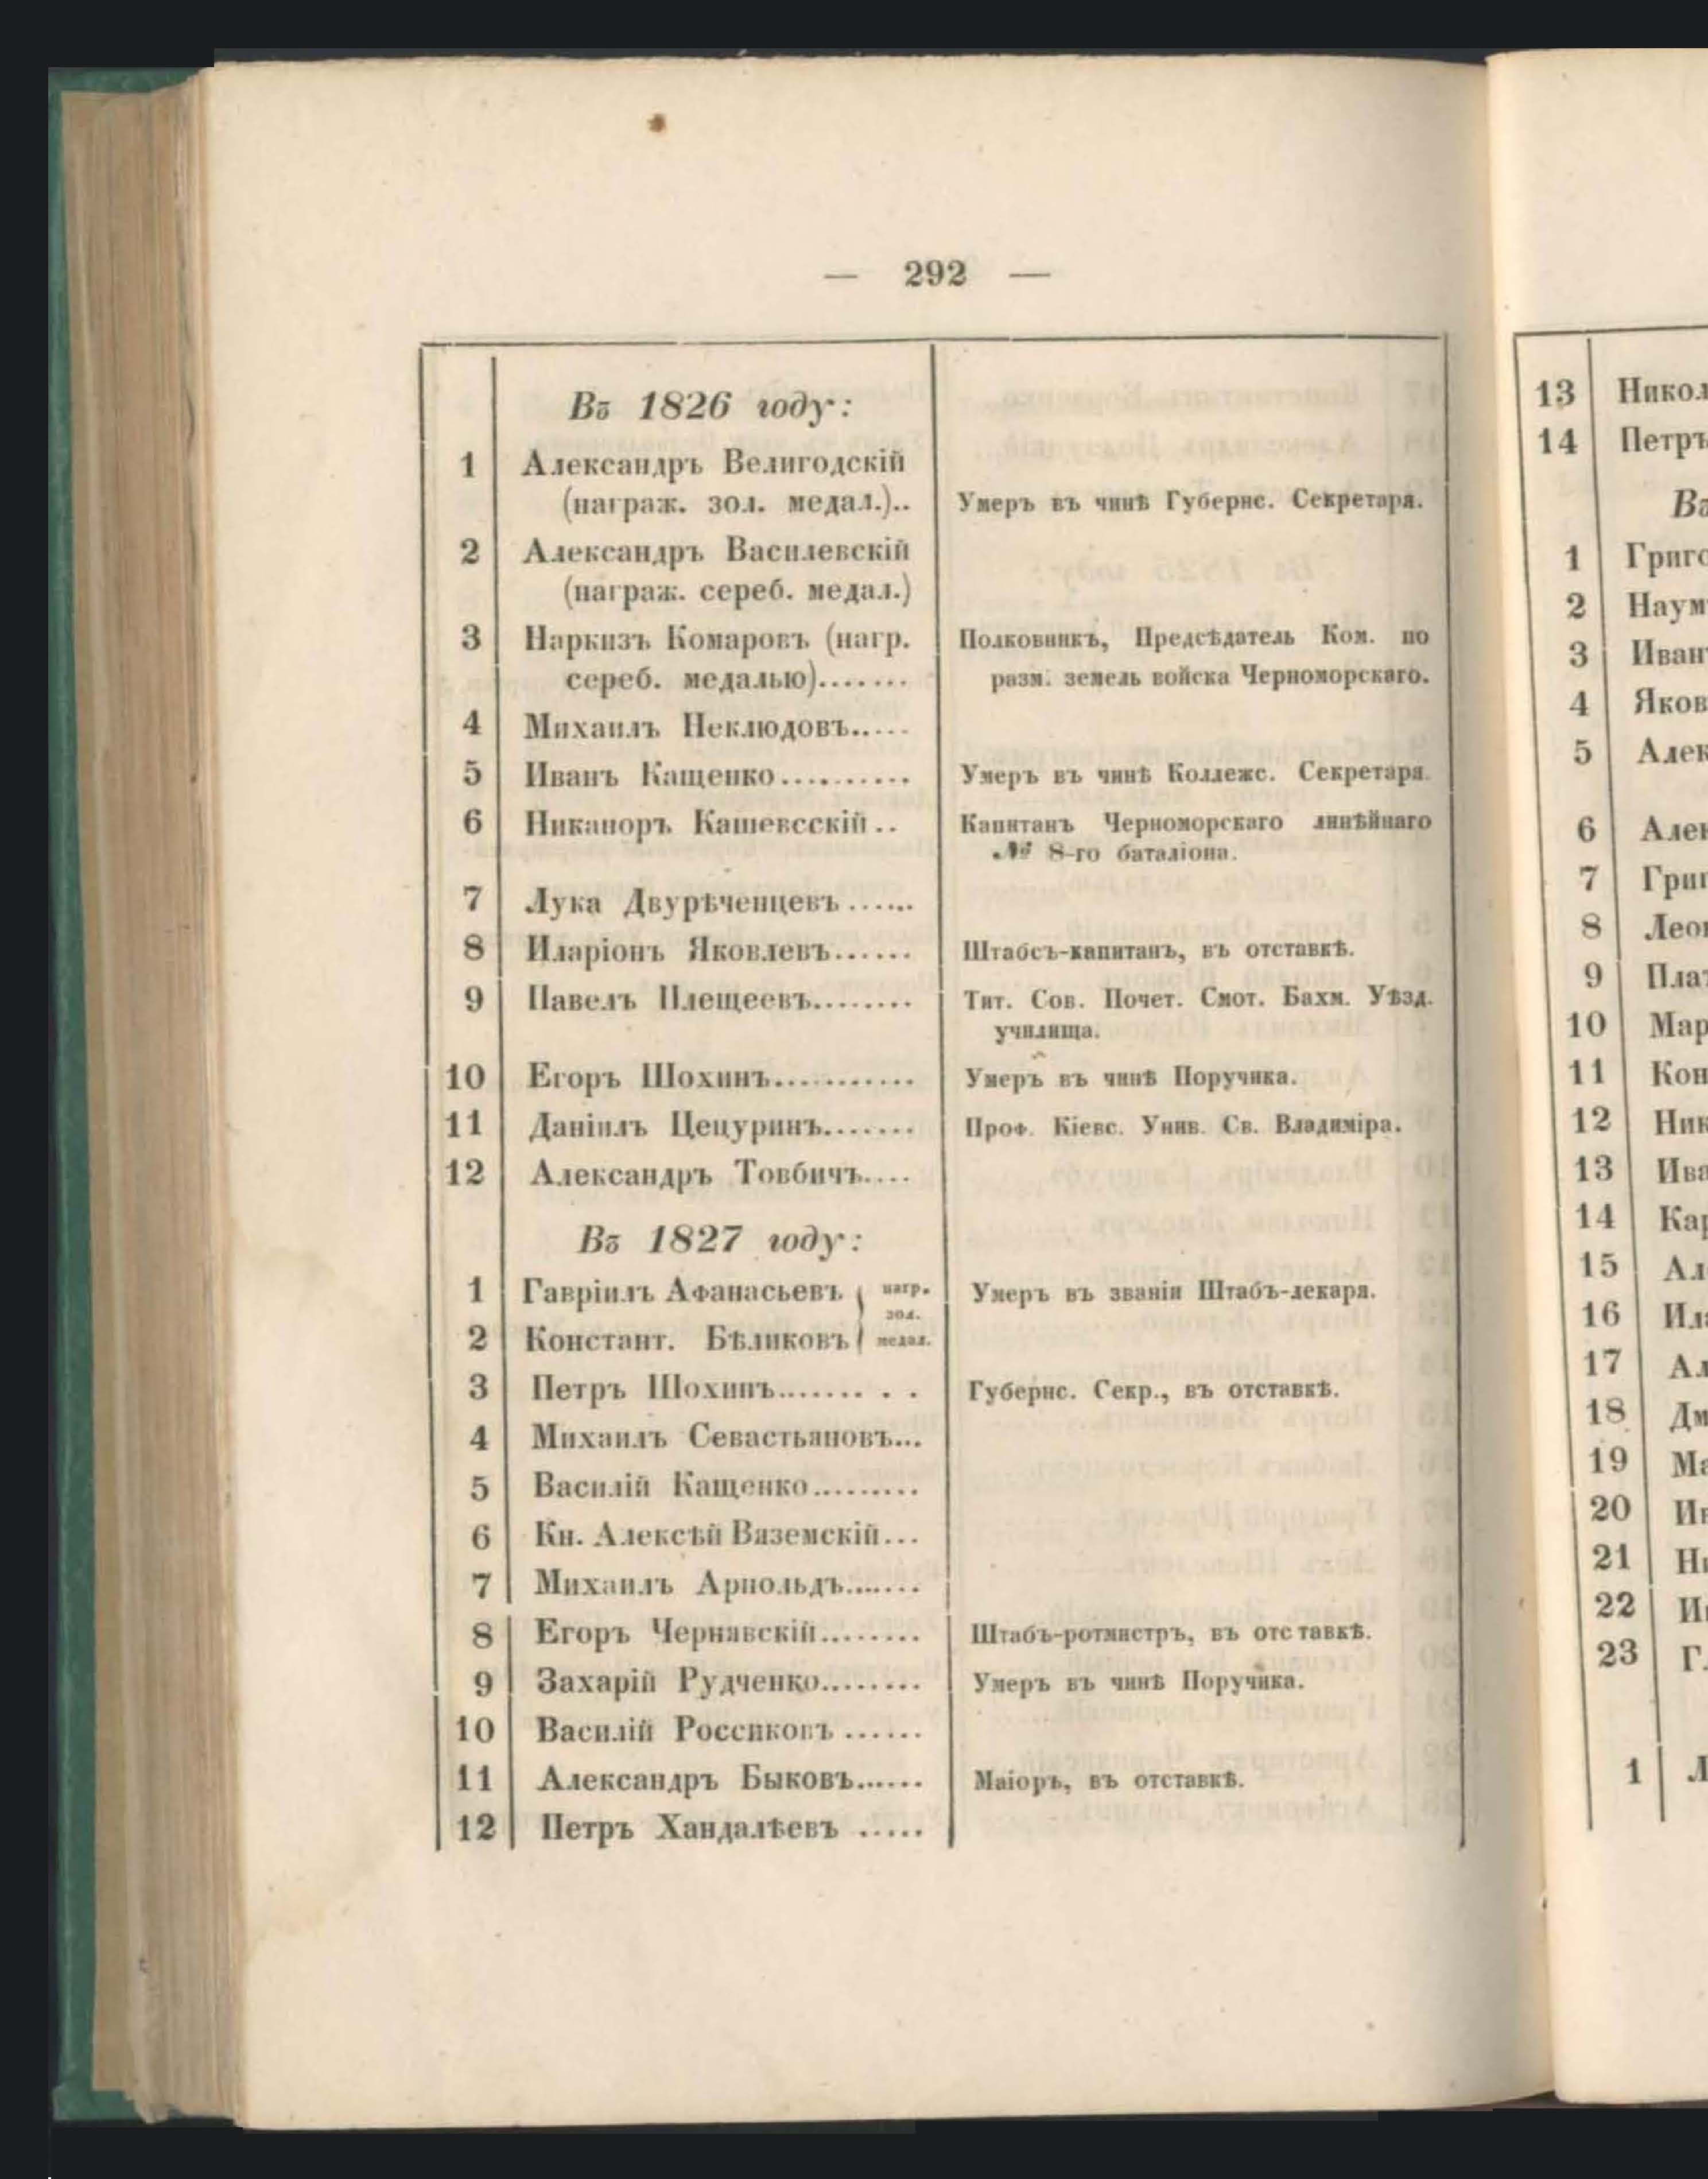 — 292 —
Въ 1826 году:
1 Александръ Велигодскій
(награж. зол. медал.).. Умеръ въ чинѣ Губернс. Секретаря.
2 Александръ Василевскій
(награж. сереб. медал.)
3 Наркизъ Комаровъ (нагр. Полковникъ, Предсѣдатель Ком. по
сереб. медалью)....... разм. земель войска Черноморскаго.
4 Михаилъ Неклюдовъ.....
5 Иванъ Кащенко.......... Умеръ въ чинѣ Коллежс. Секретаря.
6 Никаноръ Кашевсскій.. Капитанъ Черноморскаго линѣйнаго
№ 8-го баталіона.
7 Лука Двурѣченцевъ......
8 Иларіонъ Яковлевъ...... Штабсъ-капитанъ, въ отставкѣ.
9 Павелъ Плещеевъ........ Тит. Сов. Почет. Смот. Бахм. Уѣзд.
училища.
10 Егоръ Шохинъ........... Умеръ въ чинѣ Поручика.
11 Даніилъ Цецуринъ....... Проф. Кіевс. Унив. Св. Владиміра.
12 Александръ Товбичъ....
Въ 1827 году:
1 Гавріилъ Афанасьевъ нагр. Умеръ въ званіи Штабъ-лекаря.
зол.
2 Констант. Бѣликовъ медал.
3 Петръ Шохинъ....... . . Губернс. Секр., въ отставкѣ.
4 Михаилъ Севастьяновъ...
5 Василій Кащенко.........
6 Кн. Алексѣй Вяземскій...
7 Михаилъ Арнольдъ.......
8 Егоръ Чернявскій........ Штабъ-ротмистръ, въ отставкѣ.
9 Захарій Рудченко........ Умеръ въ чинѣ Поручика.
10 Василій Россиковъ ......
11 Александръ Быковъ...... Маіоръ, въ отставкѣ.
12 Петръ Хандалѣевъ .....
13
14 Петръ
1
2
3
4
5
6
7
8
9
10
11
12
13
14
15
16
17
18
19
20
21
22
23
1